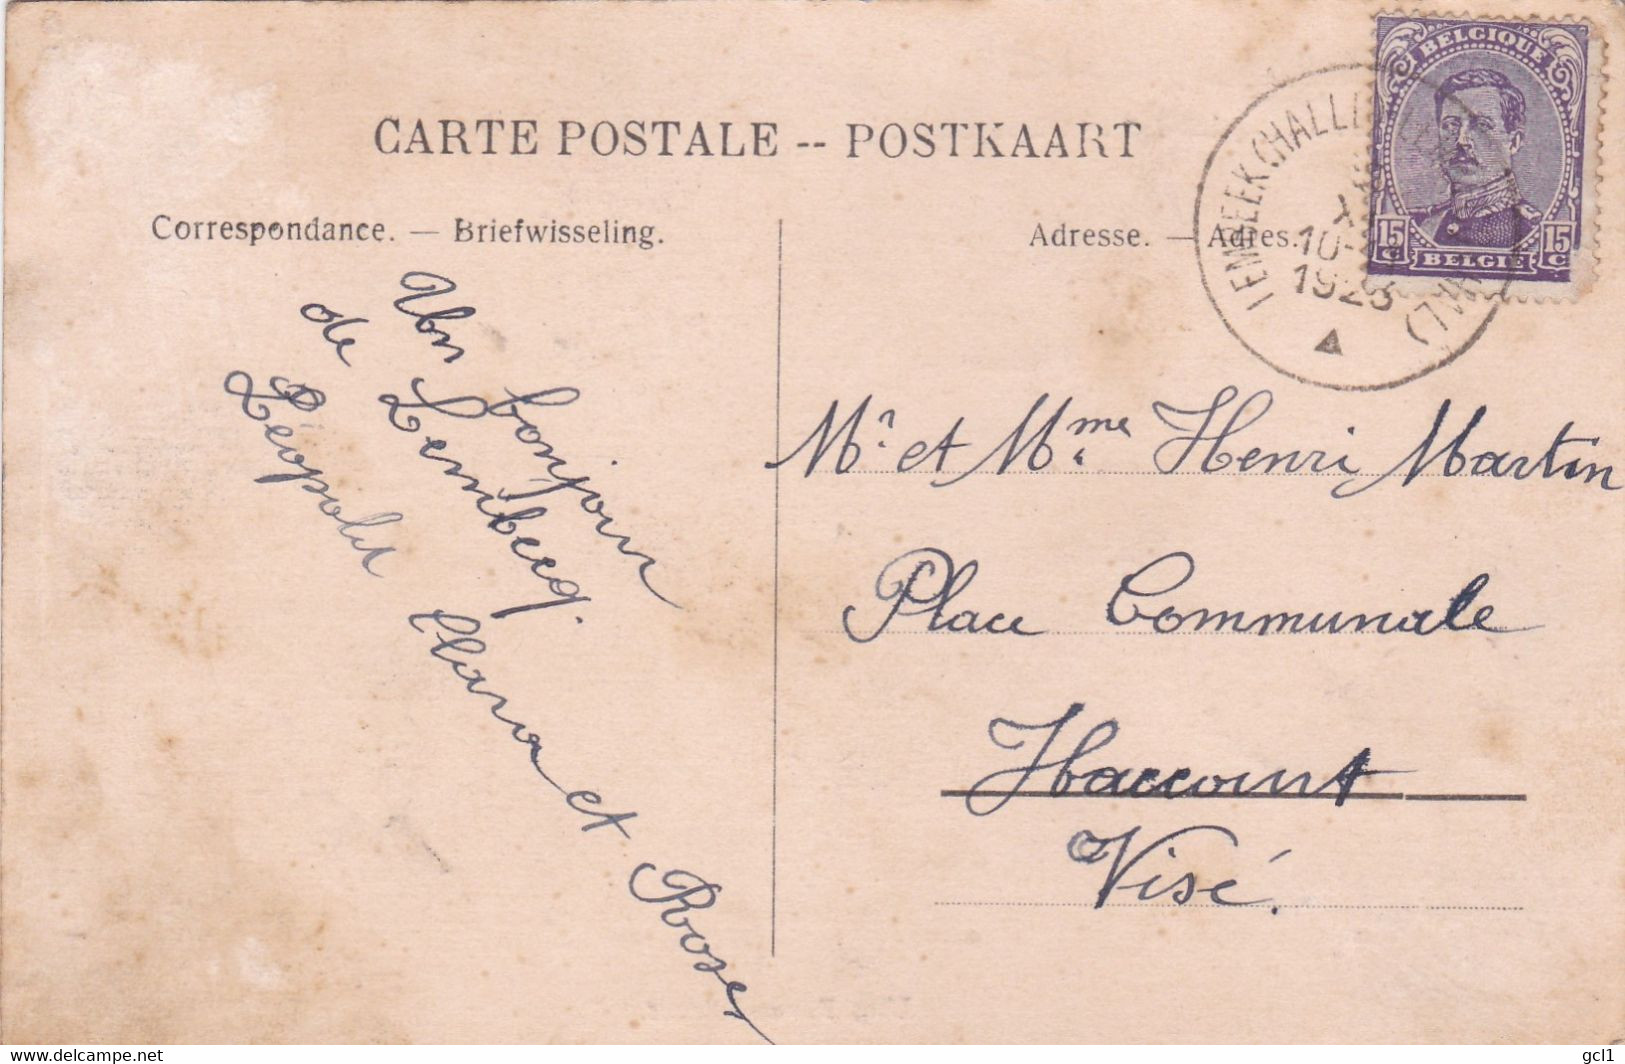 CARTE POSTALE -- POSTKAART
Correspondance. — Briefwisseling.
Adresse. — Adres.
BELGIQUE
15 C BELGIË 15 C
LEMBEEK (HALLE)
10-
1923
Un bonjour
de Lembecq.
Léopold Clara et Roose
Mr. et Mme Henri Martin
Place Communale
Haccourt
Visé.
delcampe.net
gcl1